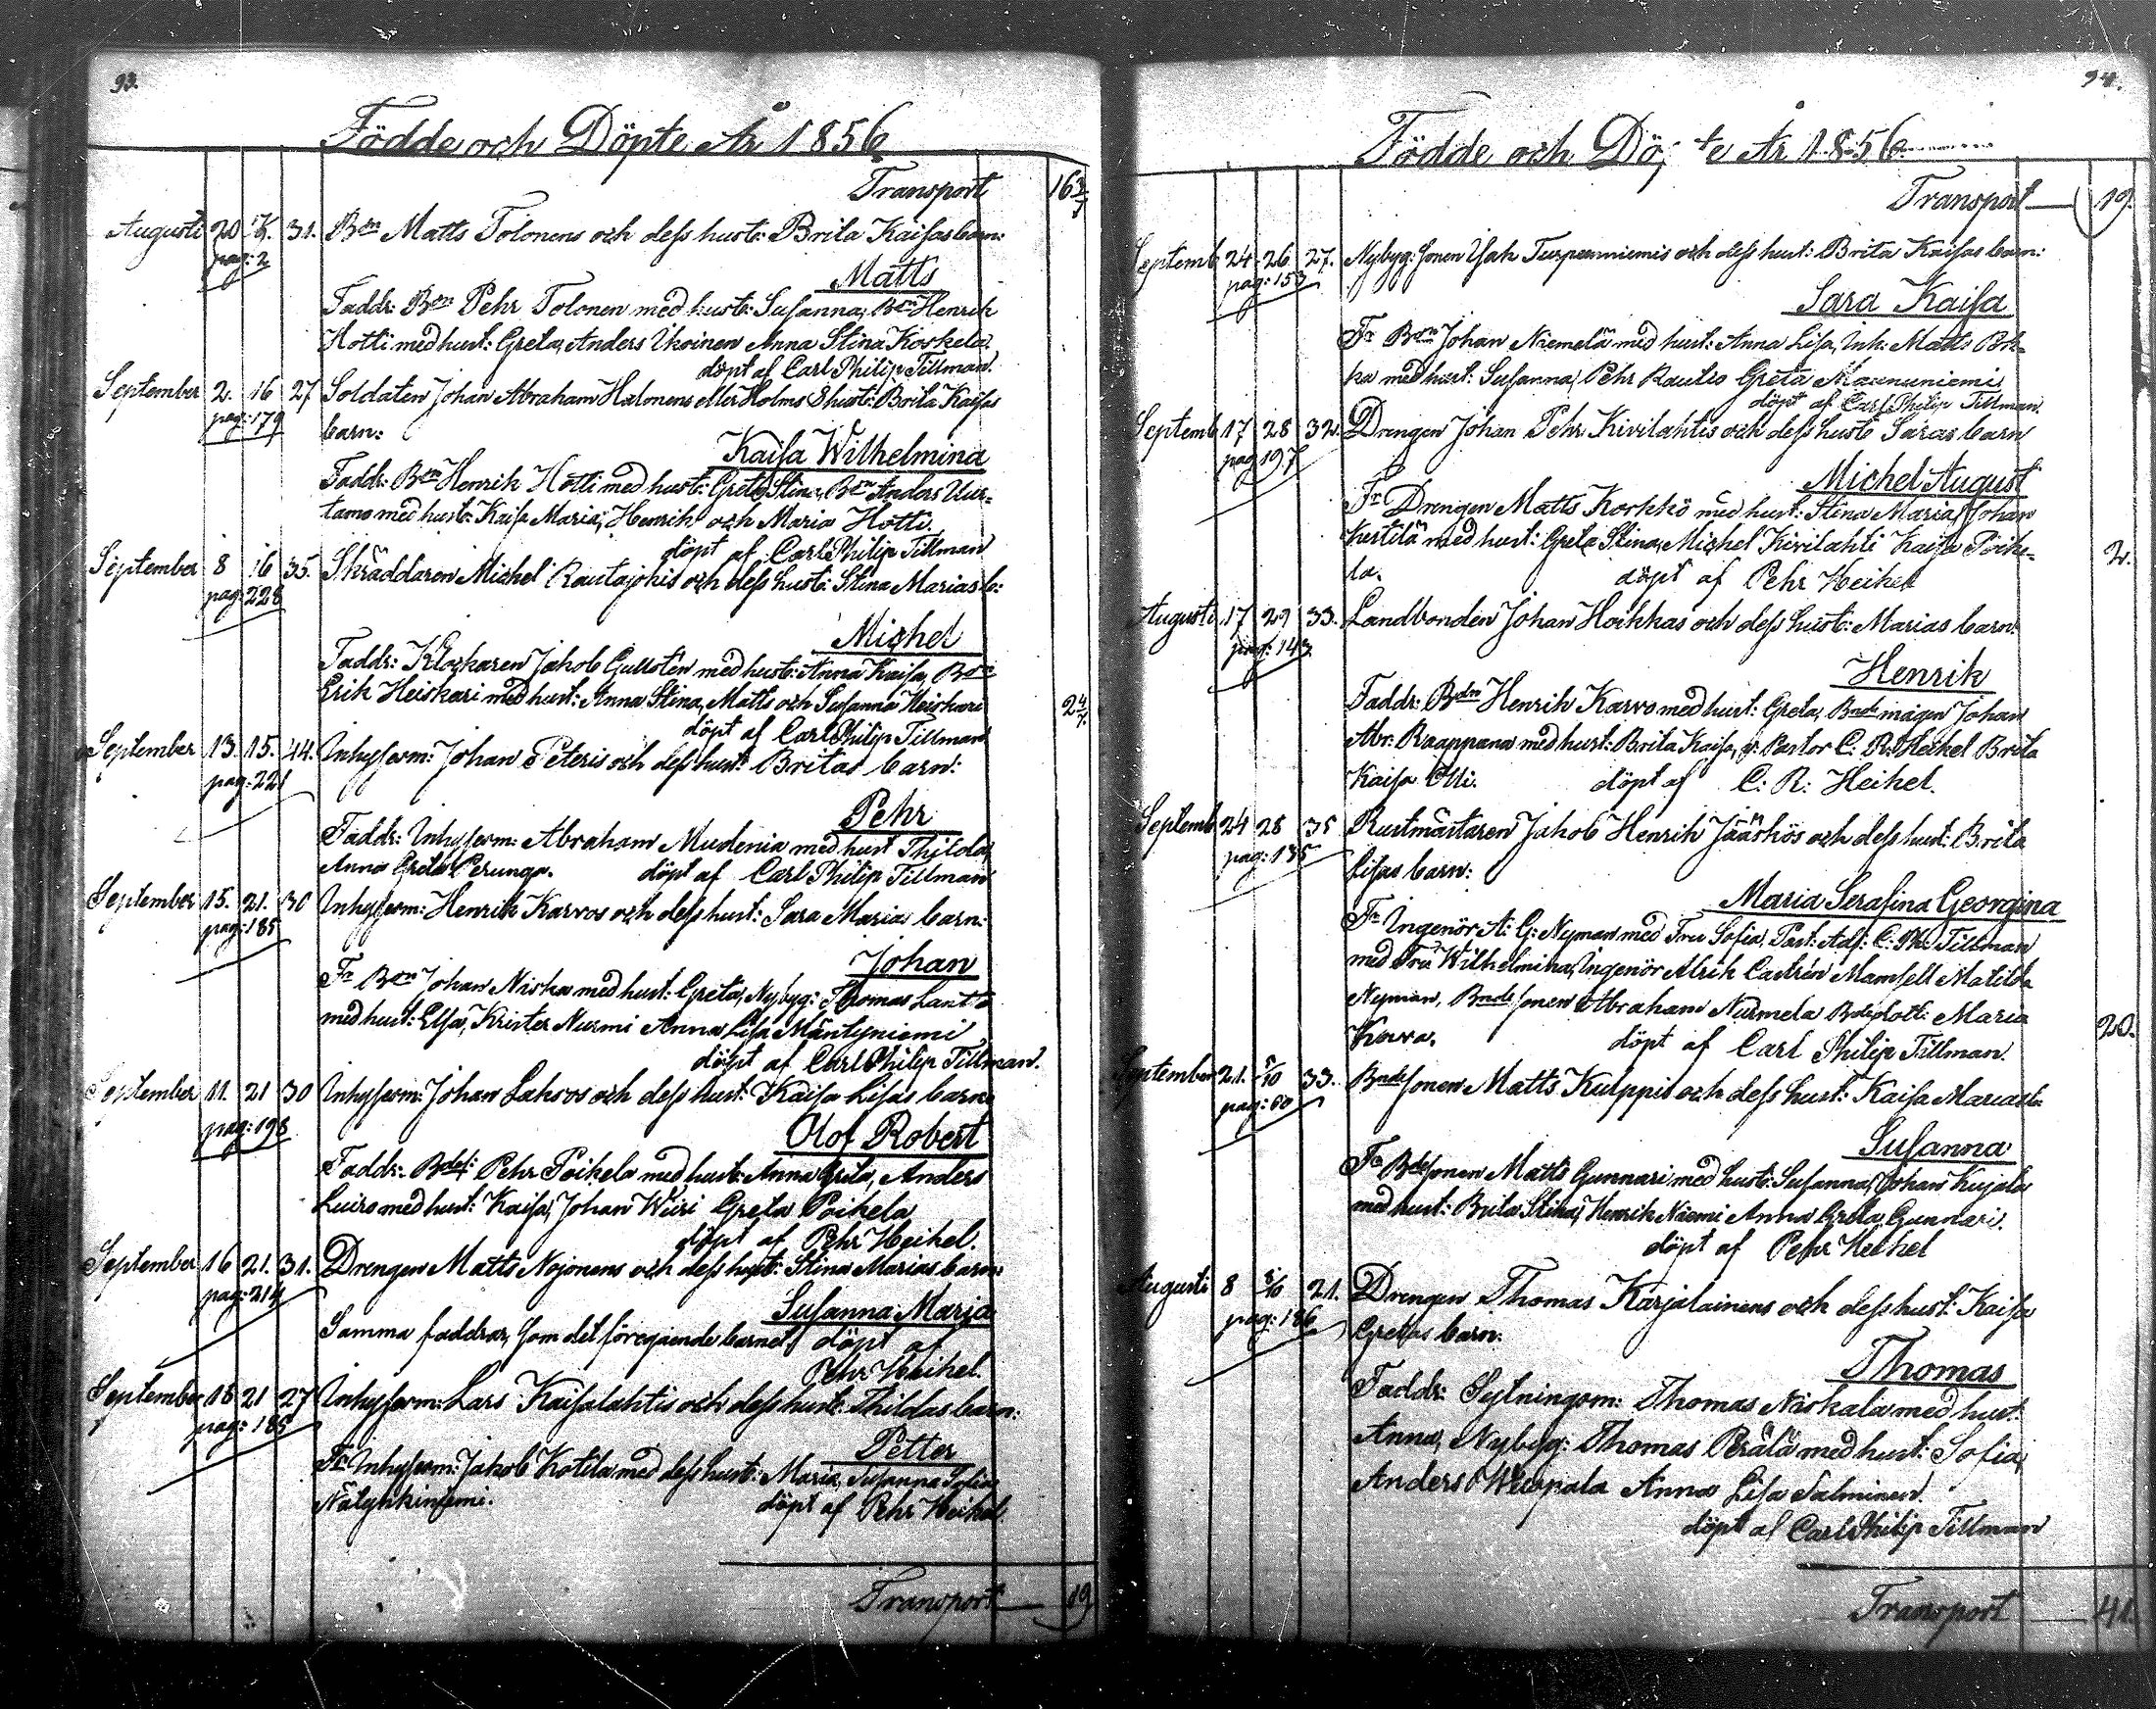 93.
Födde och Döpte År 1856
Transport 16 3/7
Augusti 20 31. Bdn Matts Tolonens och dess hust: Brita Kaisas barn:
pag: 2
Matts
Faddr: Bdn Pehr Tolonen med hust: Susanna, Bdn Henrik
Hotti med hust: Greta, Anders Anna Stina Koskela.
döpt af Carl Philip Tillman.
September 2. 16 27 Soldaten Johan Abraham Halonens eller Holms & hust: Brita Kaisas
pag: 179 barn:
Kaisa Wilhelmina
Faddr: Bdn Henrik Hotti med hust: Greta Stina, Bdn Anders Uur-
tamo med hust: Kaisa Maria, Henrik och Maria Hotti.
döpt af Carl Philip Tillman
September 8 16 35. Skräddaren Michel Rautajokis och dess hust: Stina Marias b:
pag: 228
Michel
Faddr: Klockaren Jakob Gullstén med hust: Anna Kaisa, Bdn
Erik Heiskari med hust: Anna Stina, Matts och Susanna Heiskari
2 4/7
döpt af Carl Philip Tillman
September 13. 15. 44. Inhysesm: Johan Peteris och dess hust: Britas barn:
pag: 221
Pehr
Faddr: Inhysesm: Abraham Mudenia med hust Thilda,
Anna Greta Perunga. döpt af Carl Philip Tillman
September 15. 21. 30 Inhysesm: Henrik Karvos och dess hust: Sara Marias barn:
pag: 185
Johan
Fr Bdn Johan Niska med hust: Greta, Nybyg: Thomas Lantto
med hust: Elsa, Krister Nurmi Anna Lisa Mäntyniemi
döpt af Carl Philip Tillman.
September 11. 21 30 Inhysesm: Johan Laksos och dess hust: Kaisa Lisas barn
pag: 198
Olof Robert
Faddr: Pehr Poikela med hust: Anna Greta, Anders
Luiro med hust: Kaisa, Johan Wiiri Greta Poikela
döpt af Pehr Heikel.
September 16 21. 31. Drengen Matts Nojonens och dess hust: Stina Marias barn:
pag: 214
Susanna Maria
Samma faddrar, som det föregående barnet döpt af
Pehr Heikel.
September 18 21 27 Inhysesm: Lars Kaisalahtis och dess hust: Thildas barn:
pag: 185
Petter
Fr Inhysesm: Jakob Kotila med dess hust: Maria, Susanna
döpt af Pehr Heikel
Transport 19
94.
Födde och Döpte År 1856
Transport 19.
Septemb 24 26 27. Nybyg: sonen Isak Turpeenniemis och dess hust: Brita Kaisas barn:
pag: 153
Sara Kaisa
Fr Bdn Johan Niemelä med hust: Anna Lisa, Inh: Matts Pok-
ka med hust: Susanna, Pehr Rautio Greta Maununiemi
döpt af Carl Philip Tillman.
Septemb 17 28 32. Drengen Johan Pehr Kivilahtis och dess hust: Saras barn
pag 197
Michel August
Fr Drengen Matts Korkkö med hust: Stina Maria, Johan
Kustilä med hust: Greta Stina, Michel Kivilahti Kaisa Poike-
la. döpt af Pehr Heikel
2.
Augusti 17 29 33. Landbonden Johan Hoikkas och dess hust: Marias barn:
pag: 143
Henrik
Faddr: Bdn Henrik Karvo med hust: Greta, Bnde mågen Johan
Abr: Raappana med hust: Brita Kaisa, v: Pastor C: R: Heikel Brita
Kaisa Olli. döpt af C: R: Heikel.
Septemb 24 28 35 Rustmästaren Jakob Henrik Jääskös och dess hust: Brita
pag: 135 Lisas barn:
Maria Serafina Georgina
Fr Ingenör A: G: Nyman med Fru Sofia, Past: Adj: C: Ph: Tillman
med Fru Wilhelmina, Ingenör Alrik Castrén Mamsell Matilda
Nyman, Bnde sonen Abraham Nurmela Bde dott: Maria
Karvo. döpt af Carl Philip Tillman.
20.
September 21. 5/10 33. Bnde sonen Matts Kulppis och dess hust: Kaisa Marias b:
pag: 60
Susanna
Fr Bde sonen Matts Gunnari med hust: Susanna, Johan Kujala
med hust: Brita Stina, Henrik Niemi Anna Greta Gunnari.
döpt af Pehr Heikel
Augusti 8 5/10 21. Drengen Thomas Karjalainens och dess hust: Kaisa
pag: 186 Gretas barn:
Thomas
Faddr: Sytningsm: Thomas Niskala med hust:
Anna, Nybyg: Thomas Perälä med hust: Sofia,
Anders Anna Lisa Salminen.
döpt af Carl Philip Tillman
Transport 41.